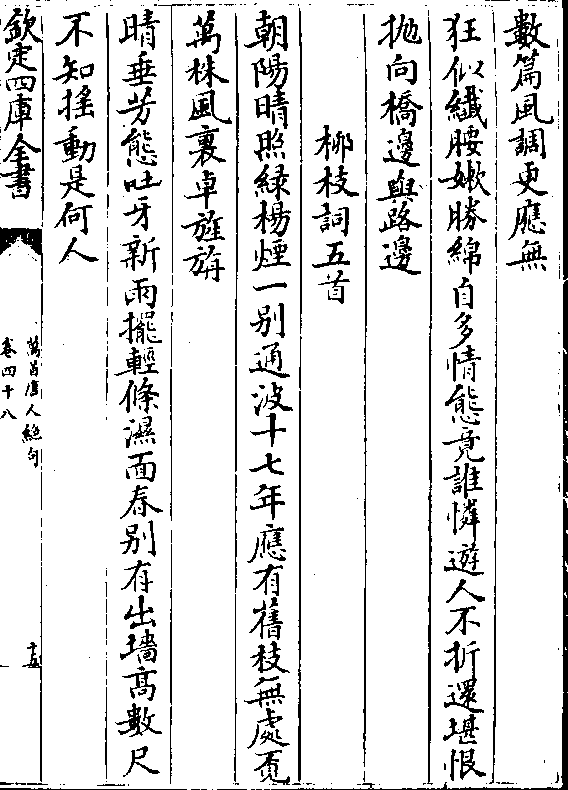 數篇風調更應無
狂似纖腰嫩勝綿自多情態竟誰憐遊人不折還堪恨
抛向橋邊與路邊
柳枝詞五首
朝陽晴照綠楊煙一别通波十七年應有舊枝無處覓
萬株風裏卓旌旃
晴垂芳態吐牙新雨擺輕條濕面春别有出墻高數尺
不知揺動是何人
欽定四庫全書
萬首唐人絶句
卷四十八
十五